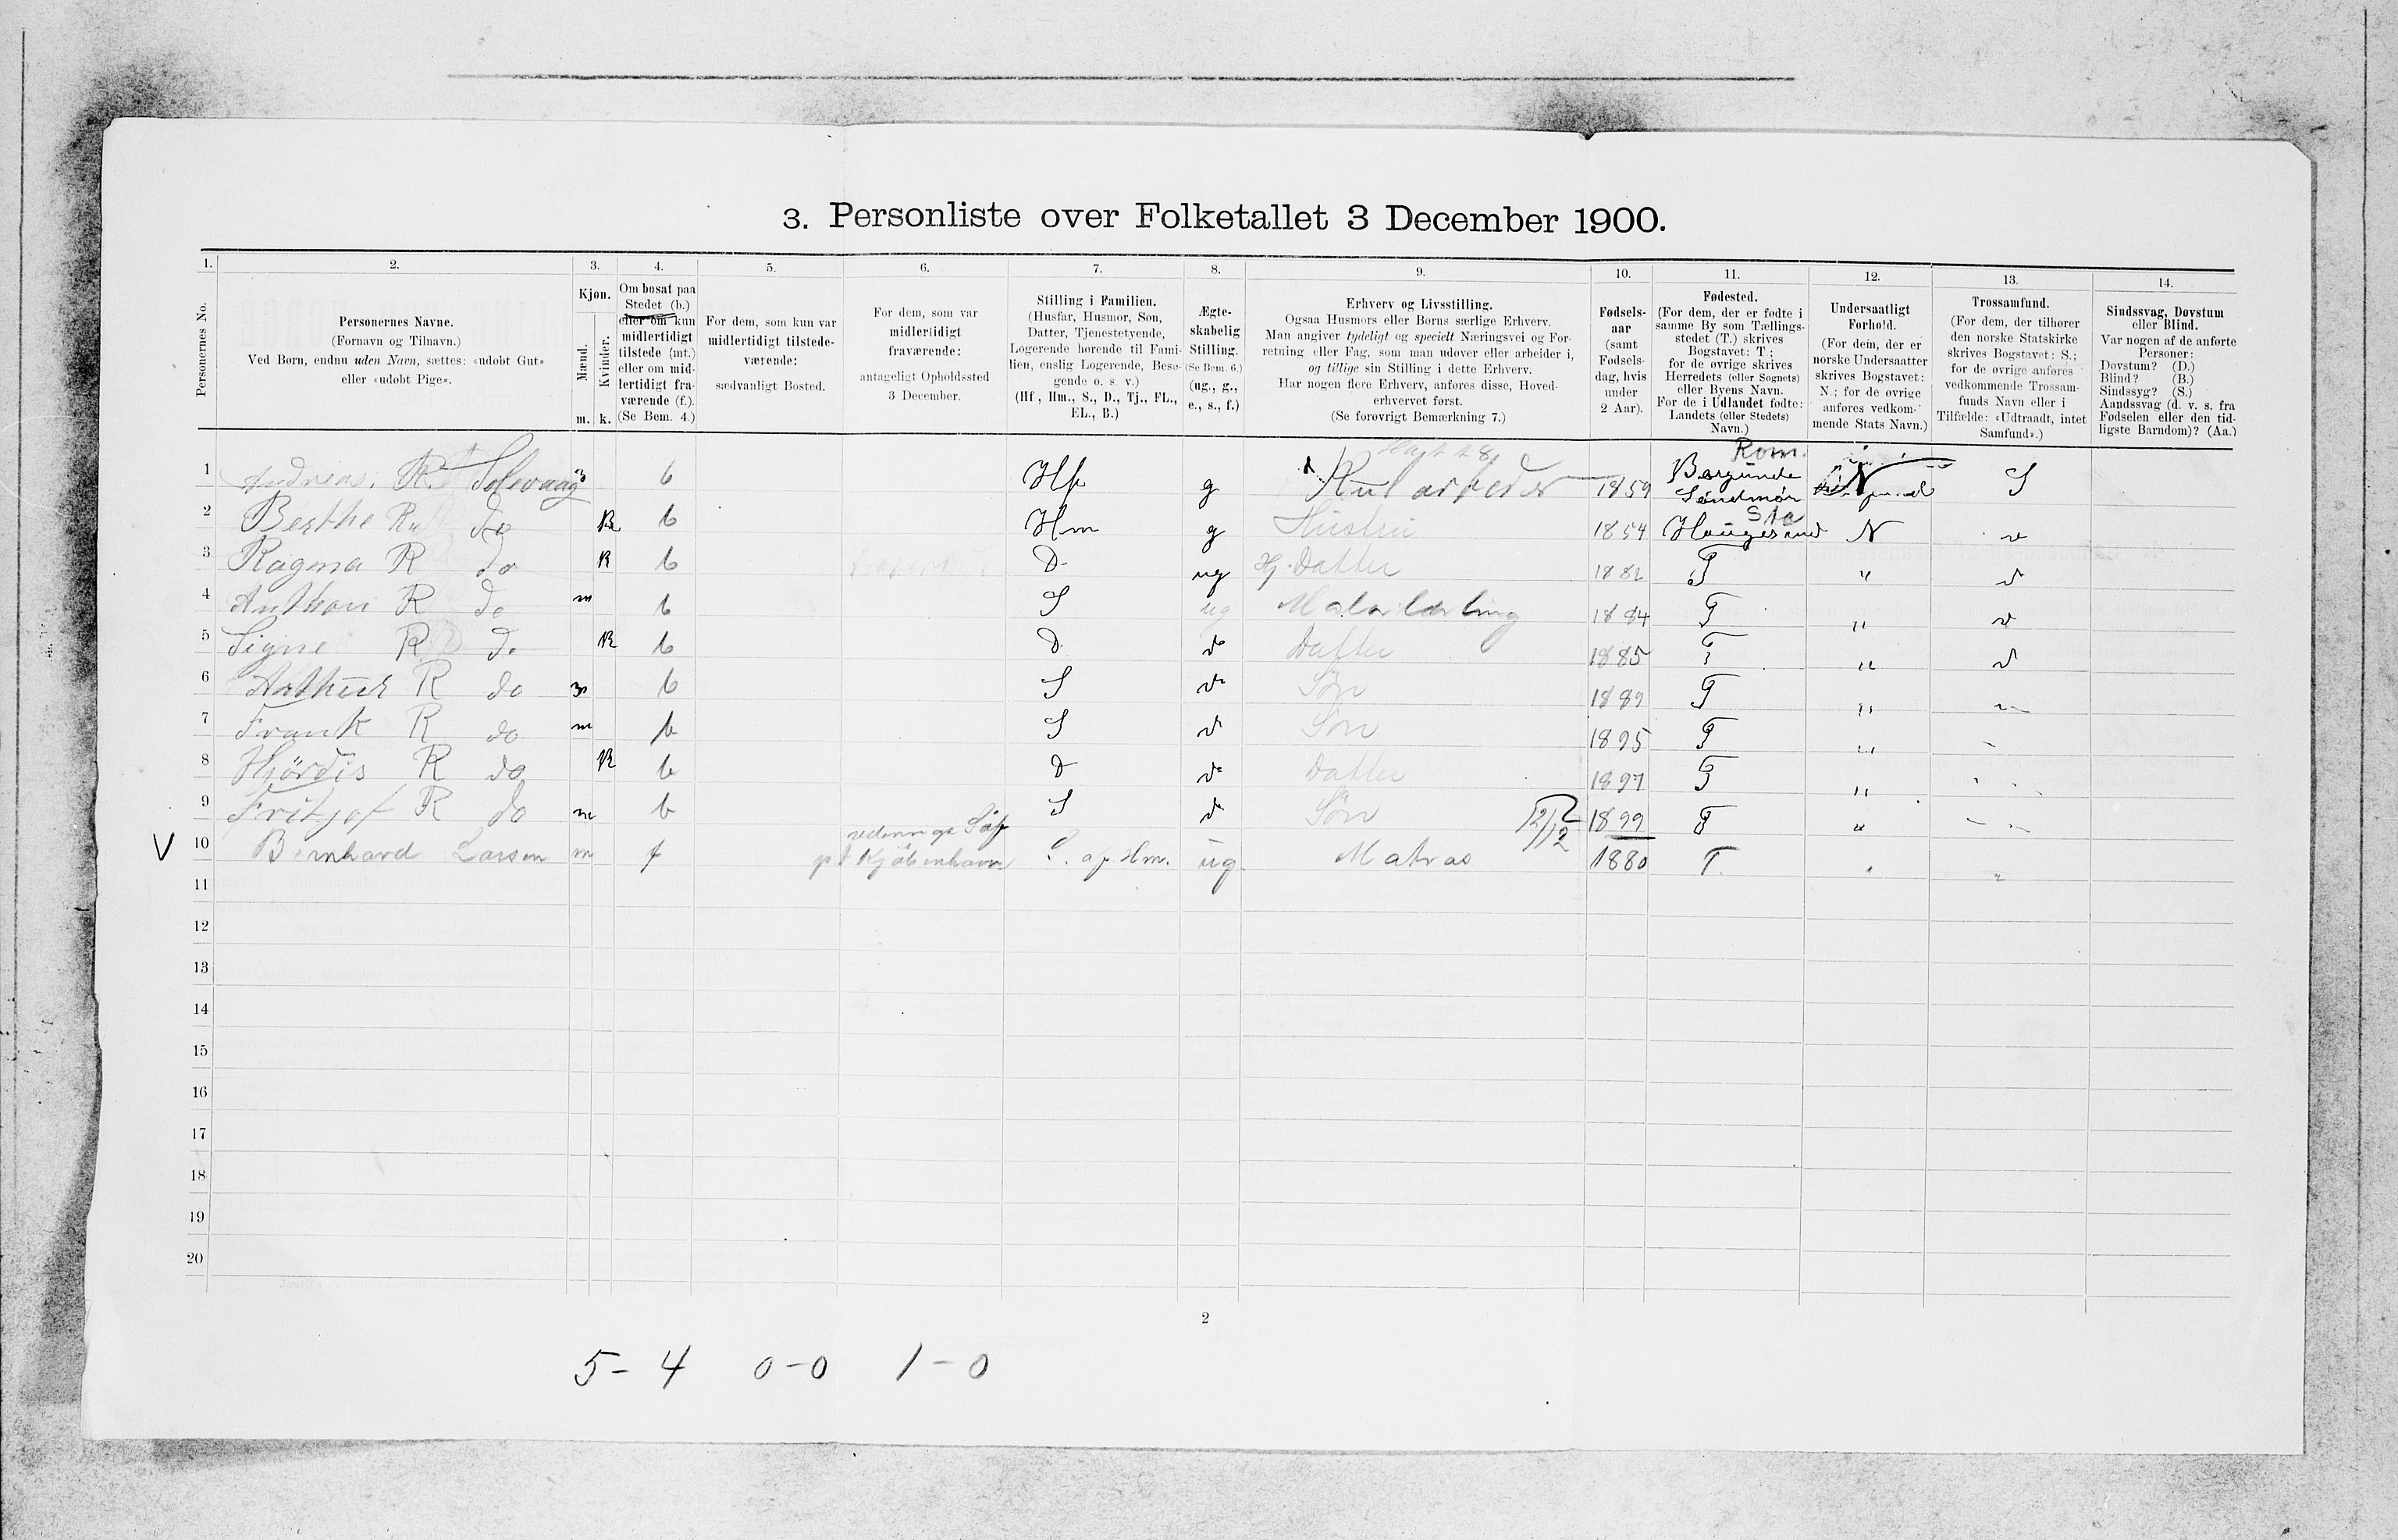 3. Personliste over Folketallet 3 December 1900.
1. 2. 3. 4. 5. 6. 7. 8. 9. 10. 11. 12. 13. 14.
Personernes No.
Personernes Navne.
(Fornavn og Tilnavn.)
Ved Børn, endnu uden Navn, sættes: «udøbt Gut»
eller «udøbt Pige».
Kjøn.
Mænd.
Kvinder.
m. k.
Om bosat paa
Stedet (b.)
eller om kun
midlertidigt
tilstede (mt.)
eller om mid-
lertidigt fra-
værende (f.).
(Se Bem. 4.)
For dem, som kun var
midlertidigt tilstede-
værende:
sædvanligt Bosted.
For dem, som var
midlertidigt
fraværende:
antageligt Opholdssted
3 December.
Stilling i Familien.
(Husfar, Husmor, Søn,
Datter, Tjenestetyende,
Logerende hørende til Fami-
lien, enslig Logerende, Besø-
gende o. s. v.)
(Hf., Hm., S., D., Tj., FL.,
EL., B.)
Ægte-
skabelig
Stilling.
(Se Bem. 6.)
(ug., g.,
e., s., f.)
Erhverv og Livsstilling.
Ogsaa Husmors eller Børns særlige Erhverv.
Man angiver tydeligt og specielt Næringsvei og For-
retning eller Fag, som man udøver eller arbeider i,
og tillige sin Stilling i dette Erhverv.
Har nogen flere Erhverv, anføres disse, Hoved-
erhvervet først.
(Se forøvrigt Bemærkning 7.)
Fødsels-
aar
(samt
Fødsels-
dag, hvis
under
2 Aar).
Fødested.
(For dem, der er fødte i
samme By som Tællings-
stedet (T.) skrives
Bogstavet: T.;
for de øvrige skrives
Herredets (eller Sognets)
eller Byens Navn.
For de i Udlandet fødte:
Landets (eller Stedets)
Navn.)
Undersaatligt
Forhold.
(For dem, der er
norske Undersaatter
skrives Bogstavet:
N.; for de øvrige
anføres vedkom-
mende Stats Navn.)
Trossamfund.
(For dem, der tilhører
den norske Statskirke
skrives Bogstavet: S.;
for de øvrige anføres
vedkommende Trossam-
funds Navn eller i
Tilfælde: «Udtraadt, intet
Samfund».)
Sindssvag, Døvstum
eller Blind.
Var nogen af de anførte
Personer:
Døvstum? (D.)
Blind? (B.)
Sindssyg? (S.)
Aandssvag (d. v. s. fra
Fødselen eller den tid-
ligste Barndom)? (Aa.)
Rom.
1 Andreas. R. Solevaag m b Hf g arbeider 1859 Borgunde Søndmør N S
Sta
2 Berthe R. do k b Hm g Hustru 1854 Haugesund N "
3 Ragna R do k b D ug Hj. Datter 1882 T " d
4 Anthon R do m b S ug Malerlærling 1884 T " d
5 Signe R do k b D do Datter 1885 T " d
6 Arthur R do m b S do Søn 1889 T " "
7 Frank R do m b S do Søn 1895 T " "
8 Hjørdis R do k b D do Datter 1897 T " "
9 Fritjof R do m b S do Søn 12/12 1899 T " "
V 10 Bernhard Larsen m f Kjøbenhavn S. af Hm. ug. Matros 1880 T. " "
11
12
13
14
15
16
17
18
19
20
2
5-4 0-0 1-0